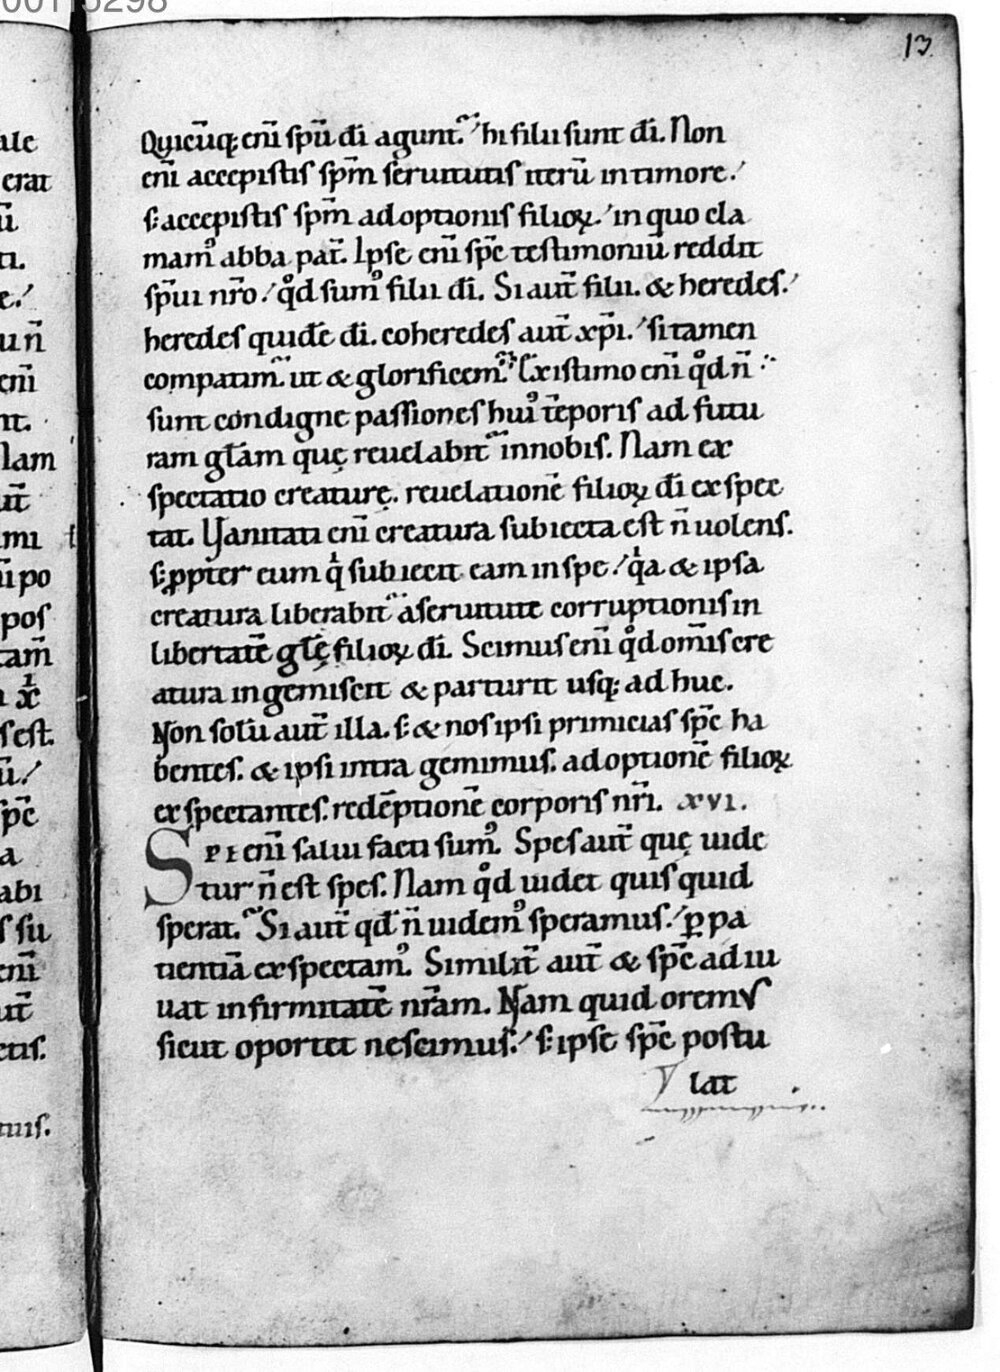 13
Quicūq; enī spū dī agunt. hi filii sunt dī. Non
enī accepistis spm̄ seruitutis iterū in timore.
s; accepistis spm̄ adoptionis filioꝝ. in quo cla
mamꝰ abba pat̄. Ipse enī spc̄ testimoniū reddit
spūi nr̄o. qd̊ sumꝰ filii dī. Si aut̄ filii. & heredes.
heredes quidē dī. coheredes aut̄ xp̄i. si tamen
compatim̄. ut & glorificem̄. Existimo enī qd̊ n̄
sunt condigne passiones huiꝰ tēporis ad futu
ram gl̄am quę reuelabit᷑ in nobis. Nam ex
spectatio creaturę. reuelationē filioꝝ dī exspec
tat. Vanitati enī creatura subiecta est n̄ uolens.
s; ꝓpter eum qͥ subiecit eam in spe. qͥa & ipsa
creatura liberabit᷑ a seruitute corruptionis in
libertatē gl̄ę filioꝝ dī. Scimus enī qd̊ om̄is cre
atura ingemiscit & parturit usq; adhuc.
Non solū aut̄ illa. s; & nos ipsi primicias spc̄ ha
bentes. & ipsi intra gemimus. adoptionē filioꝝ
exspectantes. redēptionē corporis nr̄i. xvi.
Spe enī salui facti sumꝰ. Spes aut̄ quę uide
tur n̄ est spes. Nam qd̊ uidet quis quid
sperat. Si aut̄ qd̄ n̄ uidemꝰ speramus. ꝑ pa
tientiā exspectamꝰ. Similit̄ aut̄ & spc̄ adiu
uat infirmitatē nr̄am. Nam quid oremus
sicut oportet nescimus. s; ipse spc̄ postu
lat